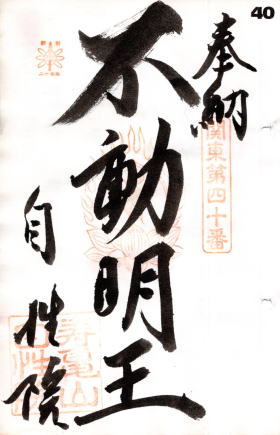 40
奉納
関東第四十番
不動明王
自性院